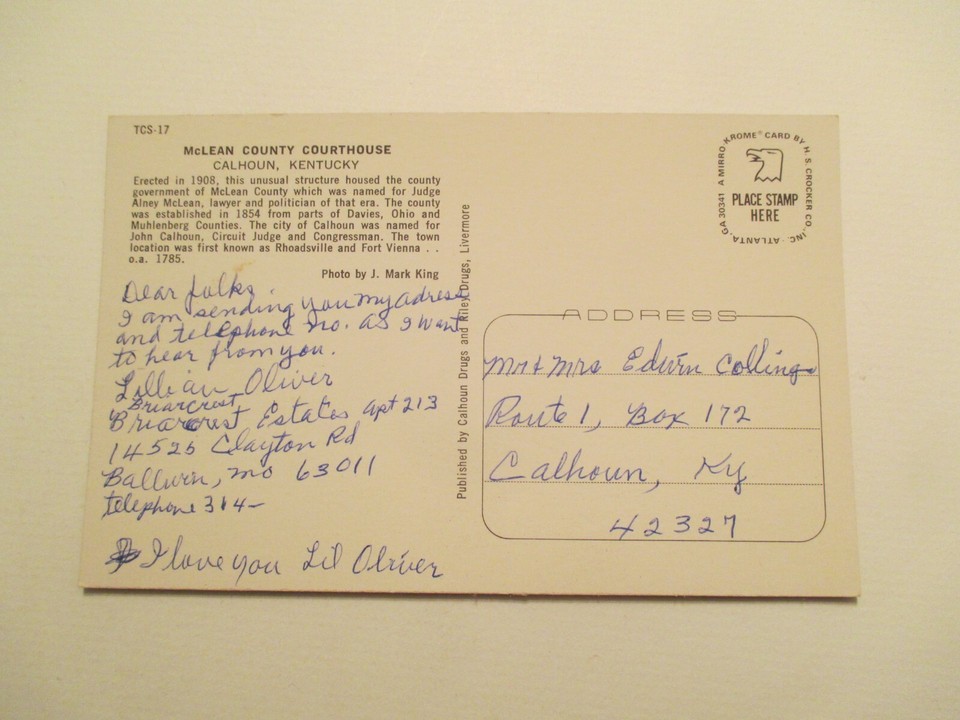 TCS-17
McLEAN COUNTY COURTHOUSE
CALHOUN, KENTUCKY
Erected in 1908, this unusual structure housed the county
government of McLean County which was named for Judge
Alney McLean, lawyer and politician of that era. The county
was established in 1854 from parts of Davies, Ohio and
Muhlenberg Counties. The city of Calhoun was named for
John Calhoun, Circuit Judge and Congressman. The town
location was first known as Rhoadsville and Fort Vienna . .
o.a. 1785.
Photo by J. Mark King
Dear folks
I am sending you my adress
and telephone no. as I want
to hear from you.
Lillian Oliver
Briarcrest
Briarcrest Estates apt 213
14525 Clayton Rd
Ballwin, Mo 63011
telephone 314-
I love you Lil Oliver
Published by Calhoun Drugs and Riley Drugs, Livermore
A MIRRO-KROME® CARD BY H. S. CROCKER CO., INC. · ATLANTA, GA 30341
PLACE STAMP
HERE
ADDRESS
Mr + Mrs Edwin Collings
Route 1, Box 172
Calhoun, Ky
42327